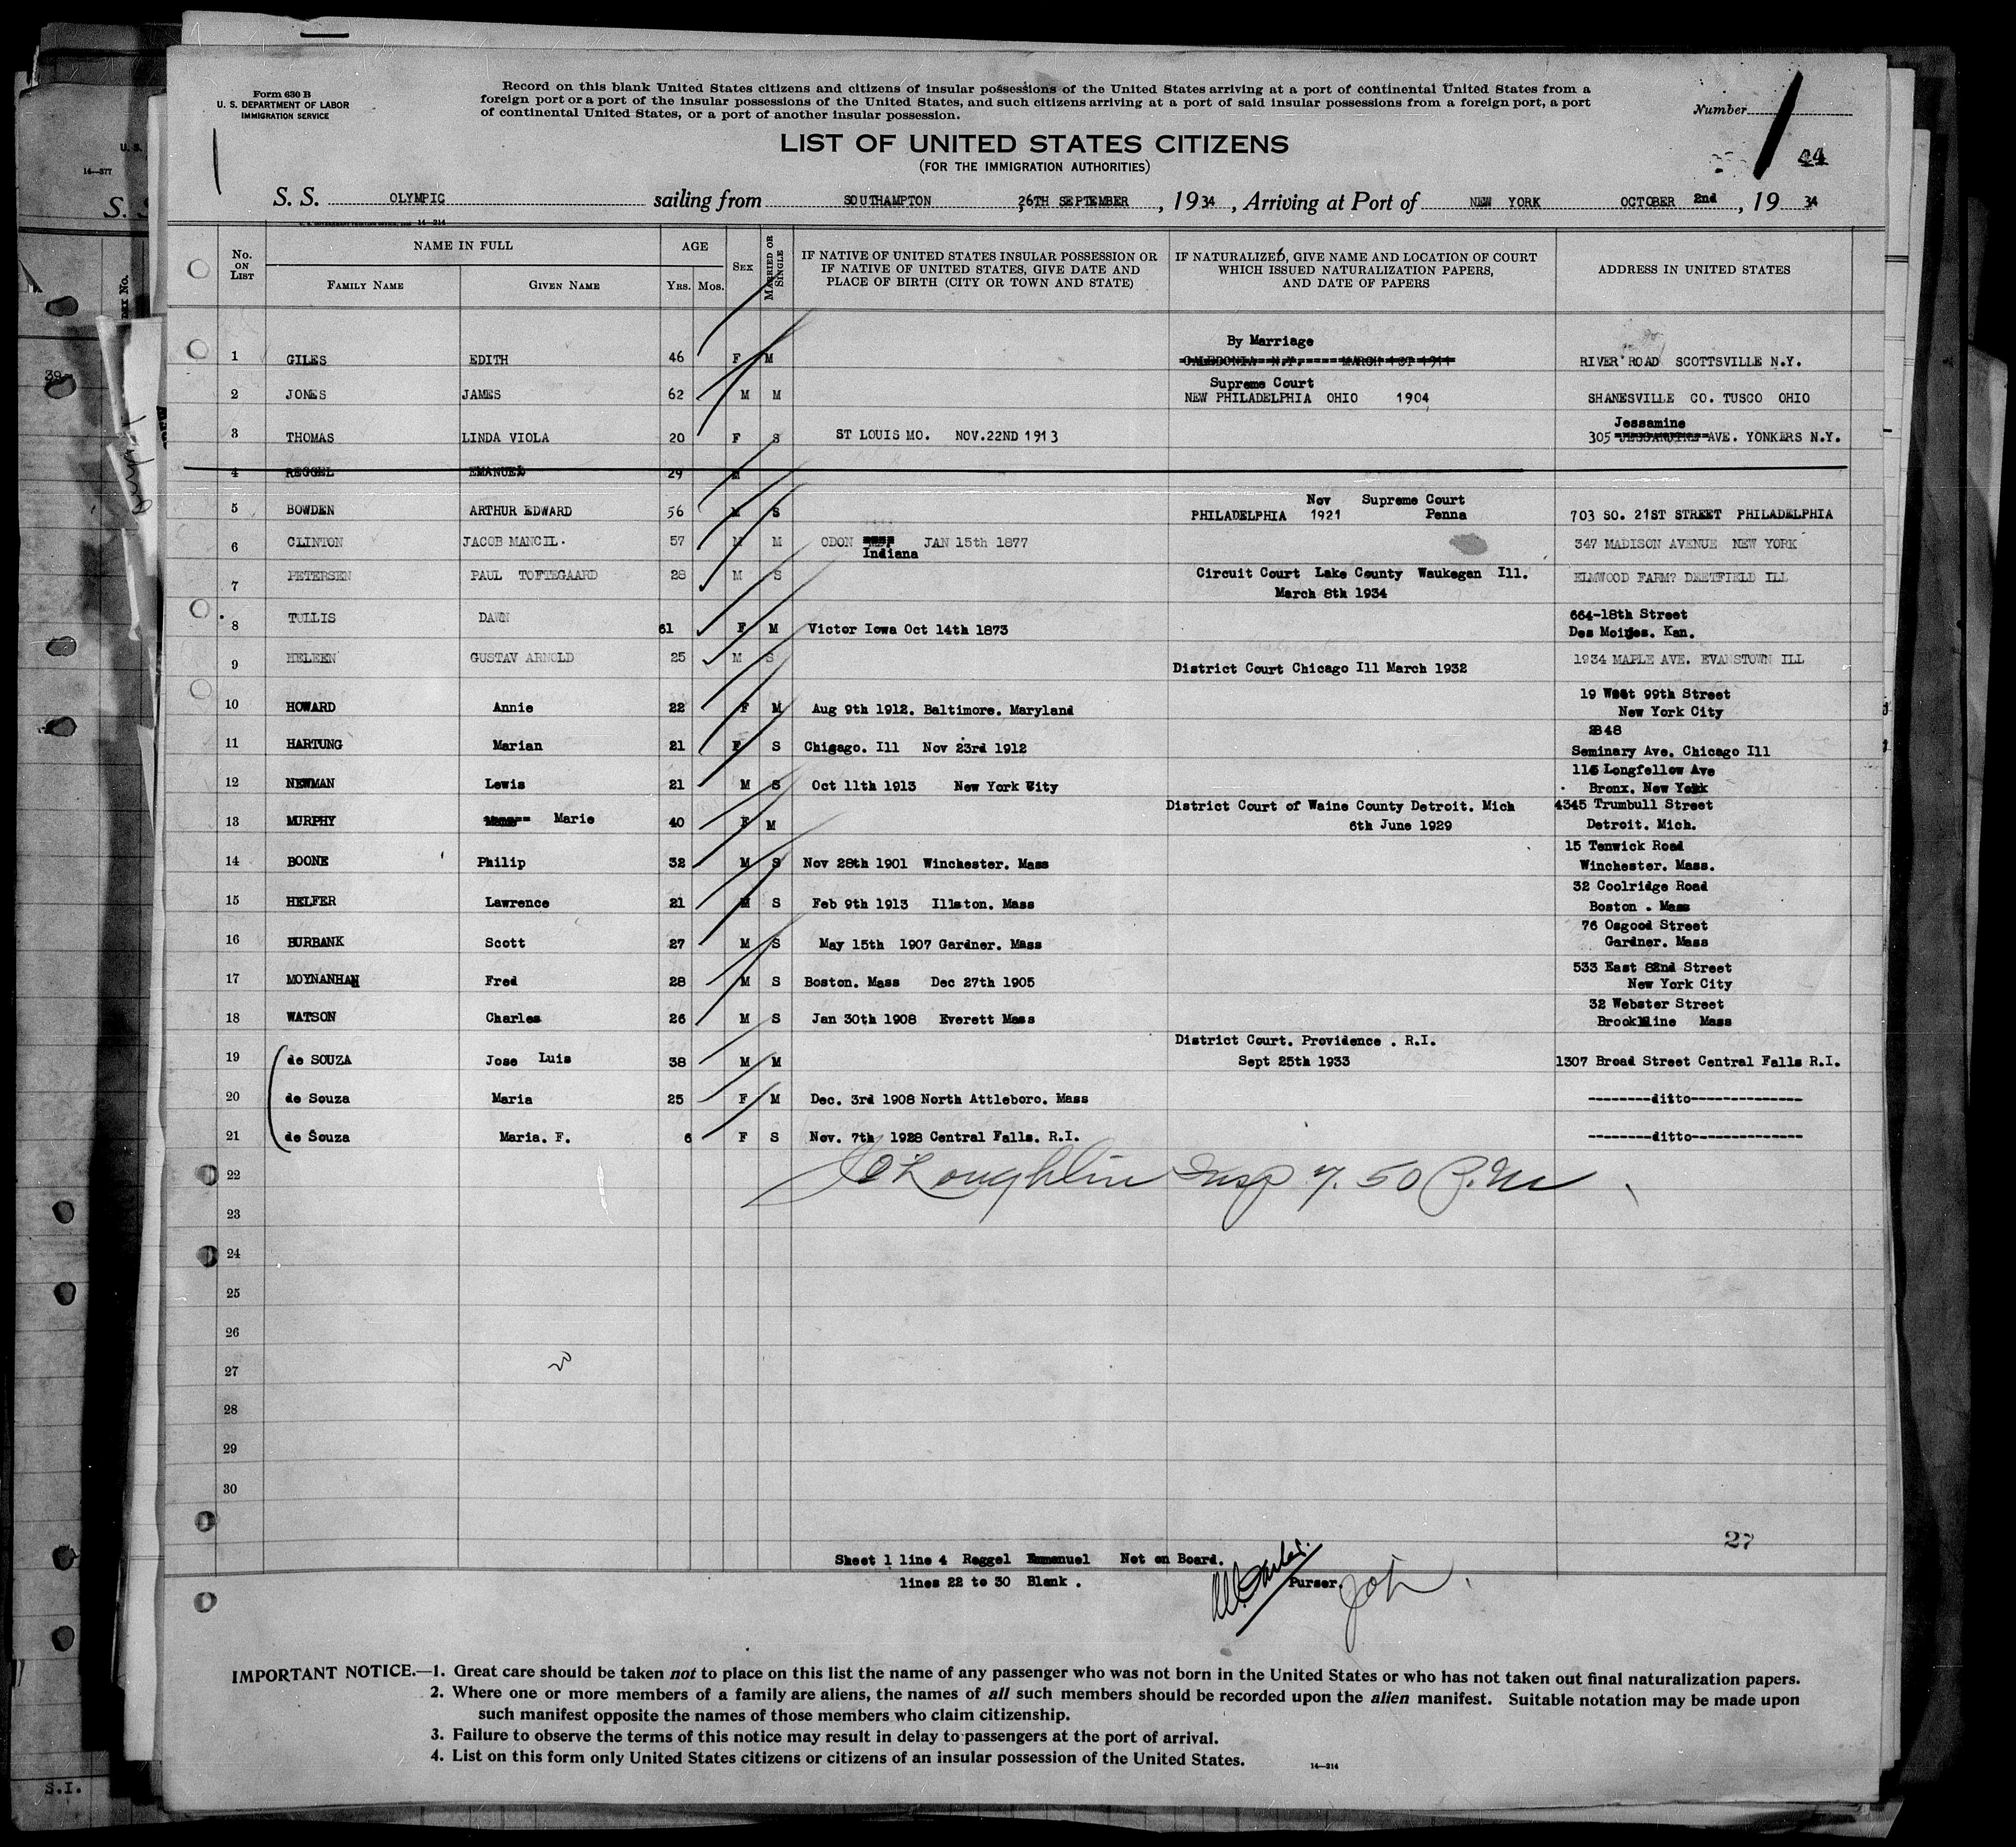 Form 630 B
U. S. DEPARTMENT OF LABOR
IMMIGRATION SERVICE
Record on this blank United States citizens and citizens of insular possessions of the United States arriving at a port of continental United States from a
foreign port or a port of the insular possessions of the United States, and such citizens arriving at a port of said insular possessions from a foreign port, a port
of continental United States, or a port of another insular possession.
Number
44
LIST OF UNITED STATES CITIZENS
(FOR THE IMMIGRATION AUTHORITIES)
S. S. OLYMPIC sailing from SOUTHAMPTON 26TH SEPTEMBER, 1934, Arriving at Port of NEW YORK OCTOBER 2nd, 1934
14—314
No. ON LIST
NAME IN FULL
FAMILY NAME GIVEN NAME
AGE
YRS. MOS.
SEX
MARRIED OR SINGLE
IF NATIVE OF UNITED STATES INSULAR POSSESSION OR
IF NATIVE OF UNITED STATES, GIVE DATE AND
PLACE OF BIRTH (CITY OR TOWN AND STATE)
IF NATURALIZED, GIVE NAME AND LOCATION OF COURT
WHICH ISSUED NATURALIZATION PAPERS,
AND DATE OF PAPERS
ADDRESS IN UNITED STATES
By Marriage
1 GILES EDITH 46 F M CALEDONIA N.Y. MARCH 1ST 1911 RIVER ROAD SCOTTSVILLE N.Y.
Supreme Court
2 JONES JAMES 62 M M NEW PHILADELPHIA OHIO 1904 SHANESVILLE CO. TUSCO OHIO
Jessamine
3 THOMAS LINDA VIOLA 20 F S ST LOUIS MO. NOV.22ND 1913 305 AVE. YONKERS N.Y.
4 REGGEL EMANUEL 29 M
Nov Supreme Court
5 BOWDEN ARTHUR EDWARD 56 M S PHILADELPHIA 1921 Penna 703 SO. 21ST STREET PHILADELPHIA
6 CLINTON JACOB MANCIL. 57 M M ODON JAN 15th 1877 347 MADISON AVENUE NEW YORK
Indiana
7 PETERSEN PAUL TOFTEGAARD 28 M S Circuit Court Lake County Waukegan Ill. ELMWOOD FARM? DEETFIELD ILL
March 8th 1934
664-18th Street
8 TULLIS DAWN 61 F M Victor Iowa Oct 14th 1873 Des Moines. Kan.
9 HELEEN GUSTAV ARNOLD 25 M S District Court Chicago Ill March 1932 1934 MAPLE AVE. EVANSTOWN ILL
19 West 99th Street
10 HOWARD Annie 22 F M Aug 9th 1912. Baltimore. Maryland New York City
2848
11 HARTUNG Marian 21 F S Chicago. Ill Nov 23rd 1912 Seminary Ave. Chicago Ill
115 Longfellow Ave
12 NEWMAN Lewis 21 M S Oct 11th 1913 New York City Bronx. New York
District Court of Waine County Detroit. Mich 4345 Trumbull Street
13 MURPHY Marie 40 F M 6th June 1929 Detroit. Mich.
15 Tenwick Road
14 BOONE Philip 32 M S Nov 28th 1901 Winchester. Mass Winchester. Mass.
32 Coolridge Road
15 HELFER Lawrence 21 M S Feb 9th 1913 Illston. Mass Boston . Mass
76 Osgood Street
16 BURBANK Scott 27 M S May 15th 1907 Gardner. Mass Gardner. Mass
533 East 82nd Street
17 MOYNANHAN Fred 28 M S Boston. Mass Dec 27th 1905 New York City
32 Webster Street
18 WATSON Charles 26 M S Jan 30th 1908 Everett Mass Brookline Mass
District Court. Providence . R.I.
19 de SOUZA Jose Luis 38 M M Sept 25th 1933 1307 Broad Street Central Falls R.I.
20 de Souza Maria 25 F M Dec. 3rd 1908 North Attleboro. Mass --------ditto--------------
21 de Souza Maria. F. 6 F S Nov. 7th 1928 Central Falls. R.I. --------ditto--------------
22 O'Loughlin Insp 7.50 P.M
23
24
25
26
27
20
28
29
30
27
Sheet 1 line 4 Reggel Emmanuel Not on Board.
lines 22 to 30 Blank .
Purser.
IMPORTANT NOTICE.—1. Great care should be taken not to place on this list the name of any passenger who was not born in the United States or who has not taken out final naturalization papers.
2. Where one or more members of a family are aliens, the names of all such members should be recorded upon the alien manifest. Suitable notation may be made upon
such manifest opposite the names of those members who claim citizenship.
3. Failure to observe the terms of this notice may result in delay to passengers at the port of arrival.
4. List on this form only United States citizens or citizens of an insular possession of the United States.
14—314
U. S.
14—377
S. S
39
S.I.